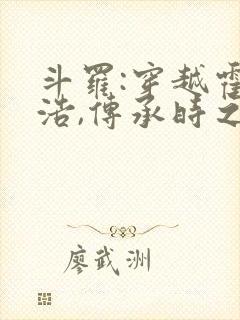 斗羅:穿越霍
浩,傳承時之
廖武洲